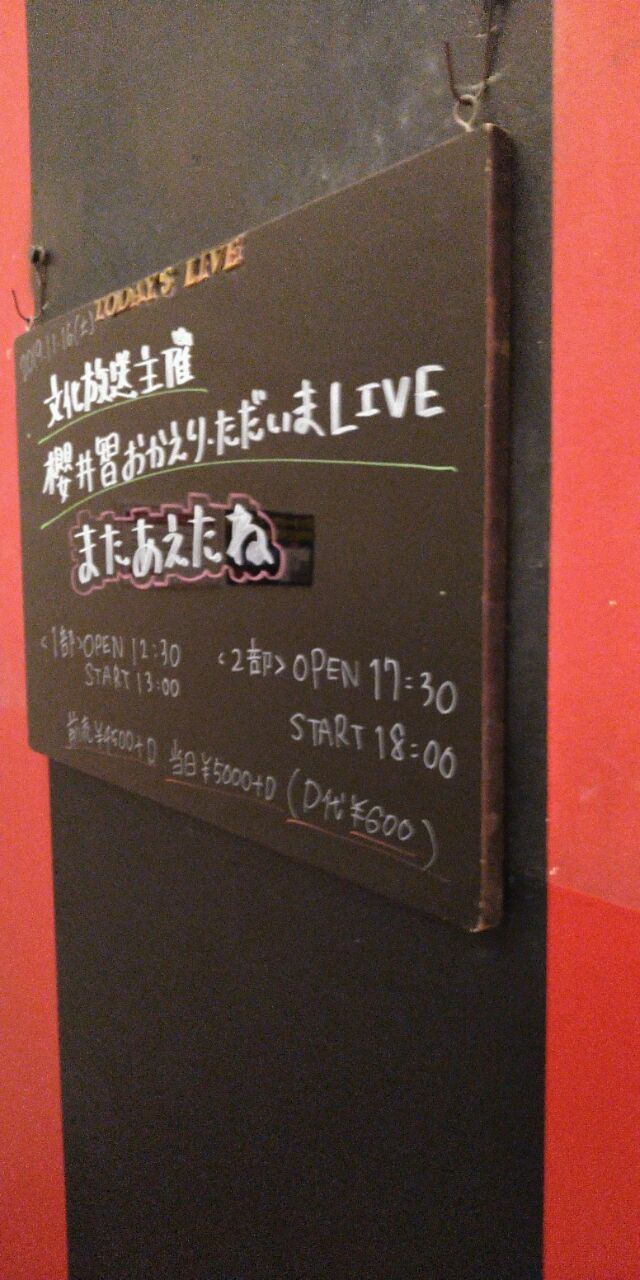 TODAYS LIVE
2019.11.16(土)
文化放送主催
櫻井智おかえり・ただいまLIVE
またあえたね
<1部>OPEN 12:30
START 13:00
<2部>OPEN 17:30
START 18:00
前売¥4500+D 当日¥5000+D (D代¥600)